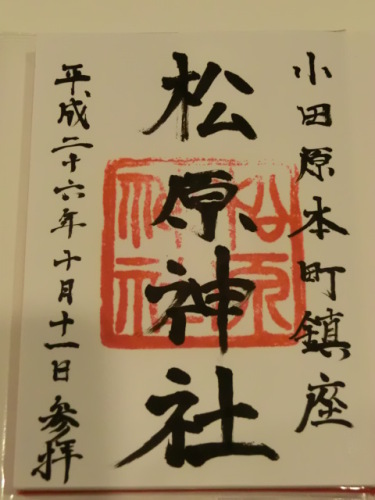 小田原本町鎮座
松原神社
平成二十六年十月十一日参拝
松原神社